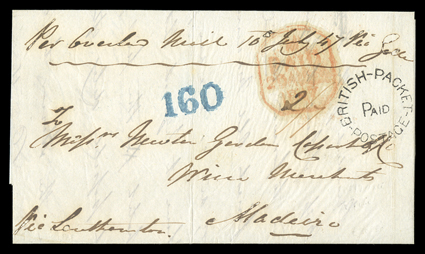 Per Overland Mail 10th July 47 Via
160
2
BRITISH-PACKET-
PAID
POSTAGE
To
Messrs Newton Gordon Cossart &
Wine Merchants
Madeira
Via Southampton